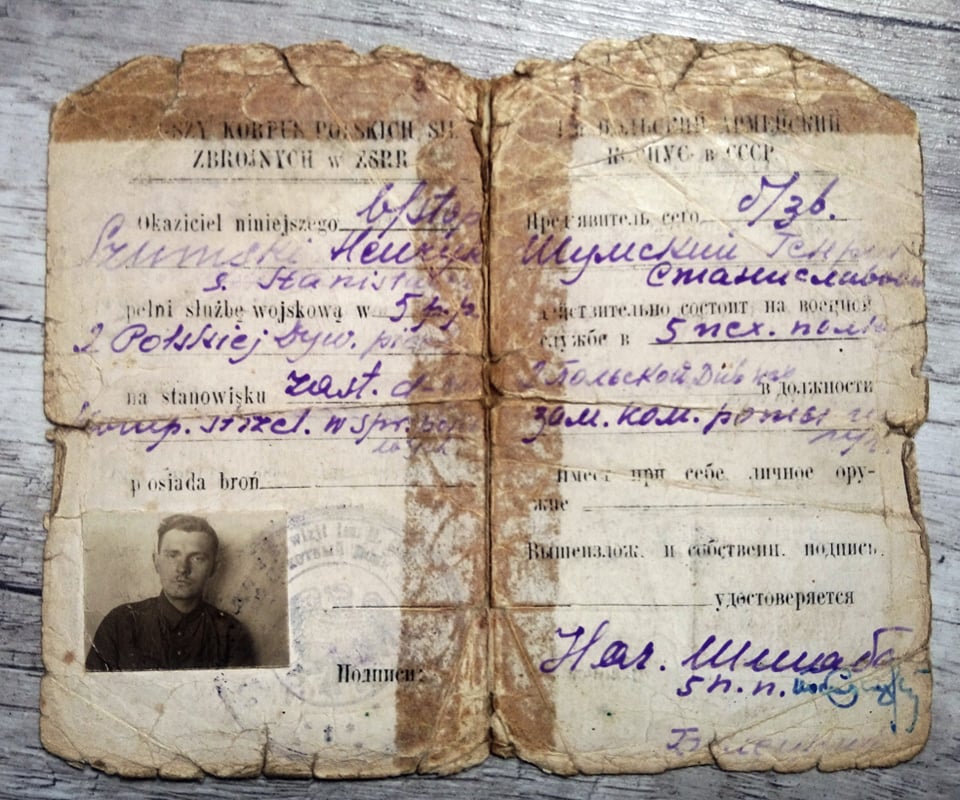 SZY KORPUS POLSKICH SIŁ
ZBROJNYCH w ZSRR
Okaziciel niniejszego b/stop
Szumski Henryk
s. Stanisława
pełni służbę wojskową w 5 p.p.
2 Polskiej Dyw. pie
na stanowisku zast. d-
komp. strzel. w spr.
posiada broń
Подписи:
АРМЕЙСКИЙ
КОРПУС в СССР
Предъявитель сего б/зв.
Шумский Генри
Станиславов
действительно состоит на военной
службе в 5 пех. полк
2 Польской Див
в должности
зам. ком. роты
имеет при себе личное ору-
жие
Вышеизлож. и собственн. подпись
удостоверяется
Нач. Штаба
5 п.п.